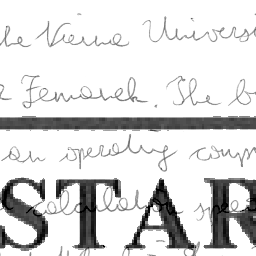 the Vienna Universi
Zemanek. The b
an operating comp
calculation spee
STAR